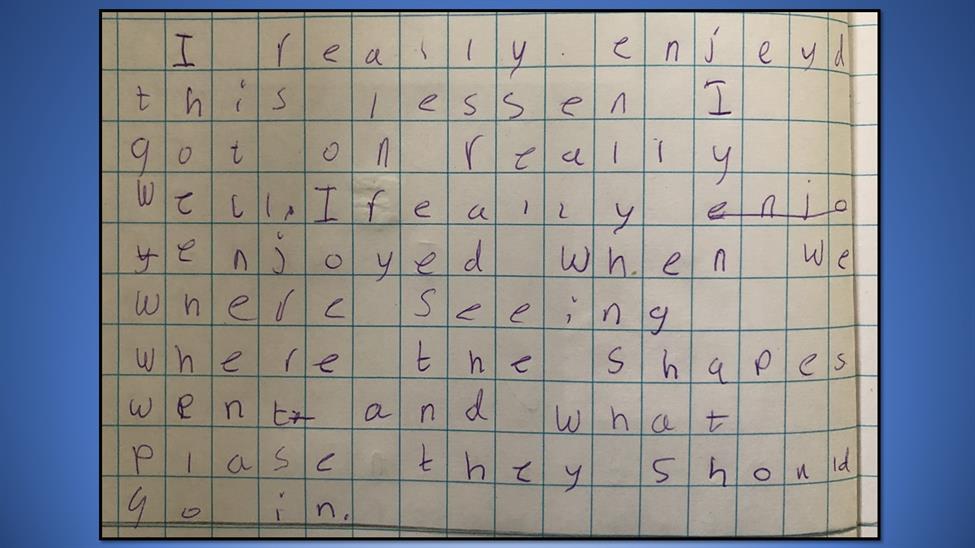 I really enjeyd
this lessen I
got on really
well. I really enjo
yenjoyed when we
where Seeing
where the shapes
went and what
plase they should
go in.